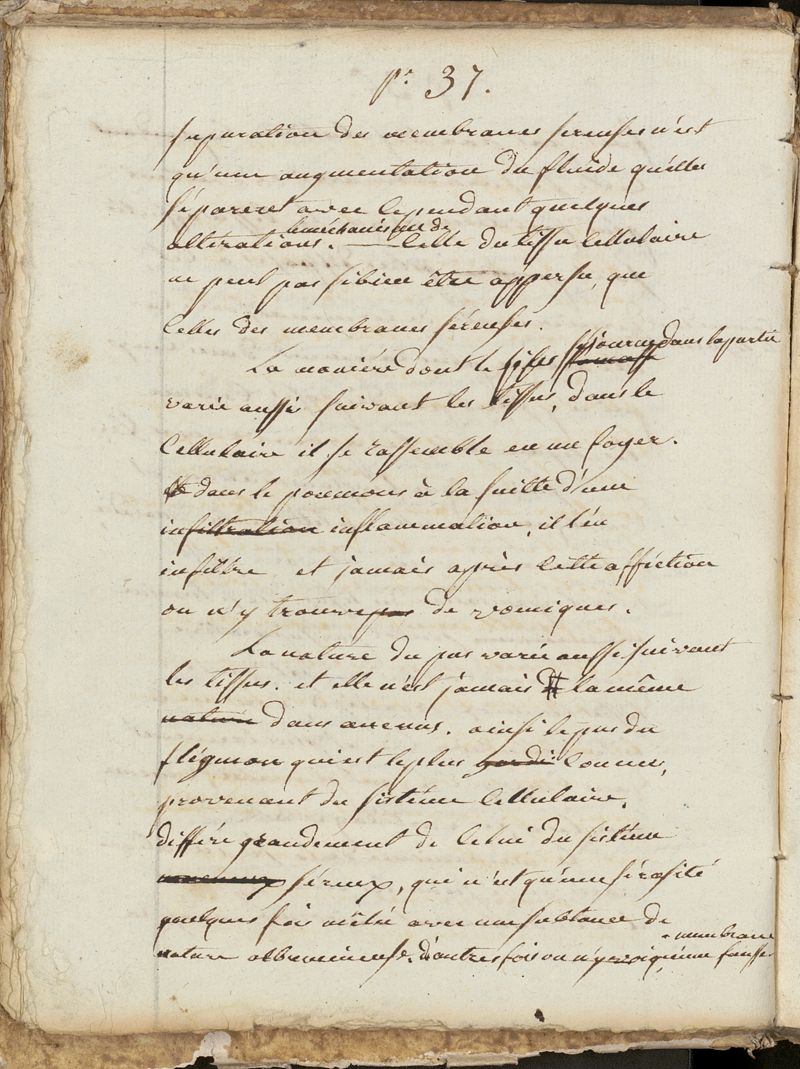 p.r 37.
séparation des membranes sereuses n'est
qu'une augmentation du fluide qu'elles
séparent avec cependant quelques
le méchanisme de
alterations. — Celle du tissu cellulaire
ne peut pas si bien être appersu, que
celles des membranes séreuses.
La maniére dont le séjourne dans la partie
varie aussi suivant les tissus, dans le
cellulaire il se rassemble en un foyer.
dans le poumons à la suitte d'une
infiltration inflammation, il s'en
infiltre et jamais après cette affection
on n'y trouve pas de vomiques.
La nature du pus varie aussi suivant
les tissus. et elle n'est jamais la même
nature dans aucuns. ainsi le pus du
flégmon qui est le plus connu,
provenant du sistéme cellulaire,
différe grandement de celui du sistéme
séreux, qui n'est qu'une sérosité
quelques fois mêlée avec une substance de
membrane
nature albumineuse. d'autres fois on n'y qu'une fausse